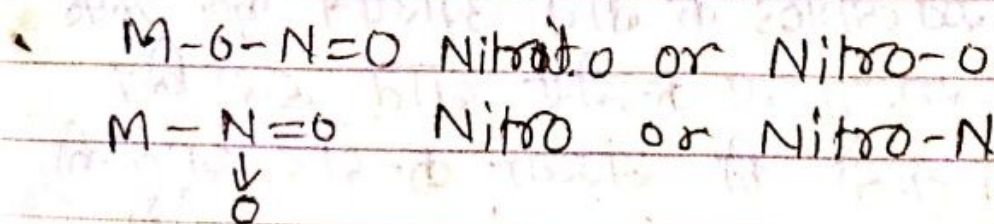 M-O-N=O Nitrato or Nitro-O
M-N=O Nitro or Nitro-N
↓
O